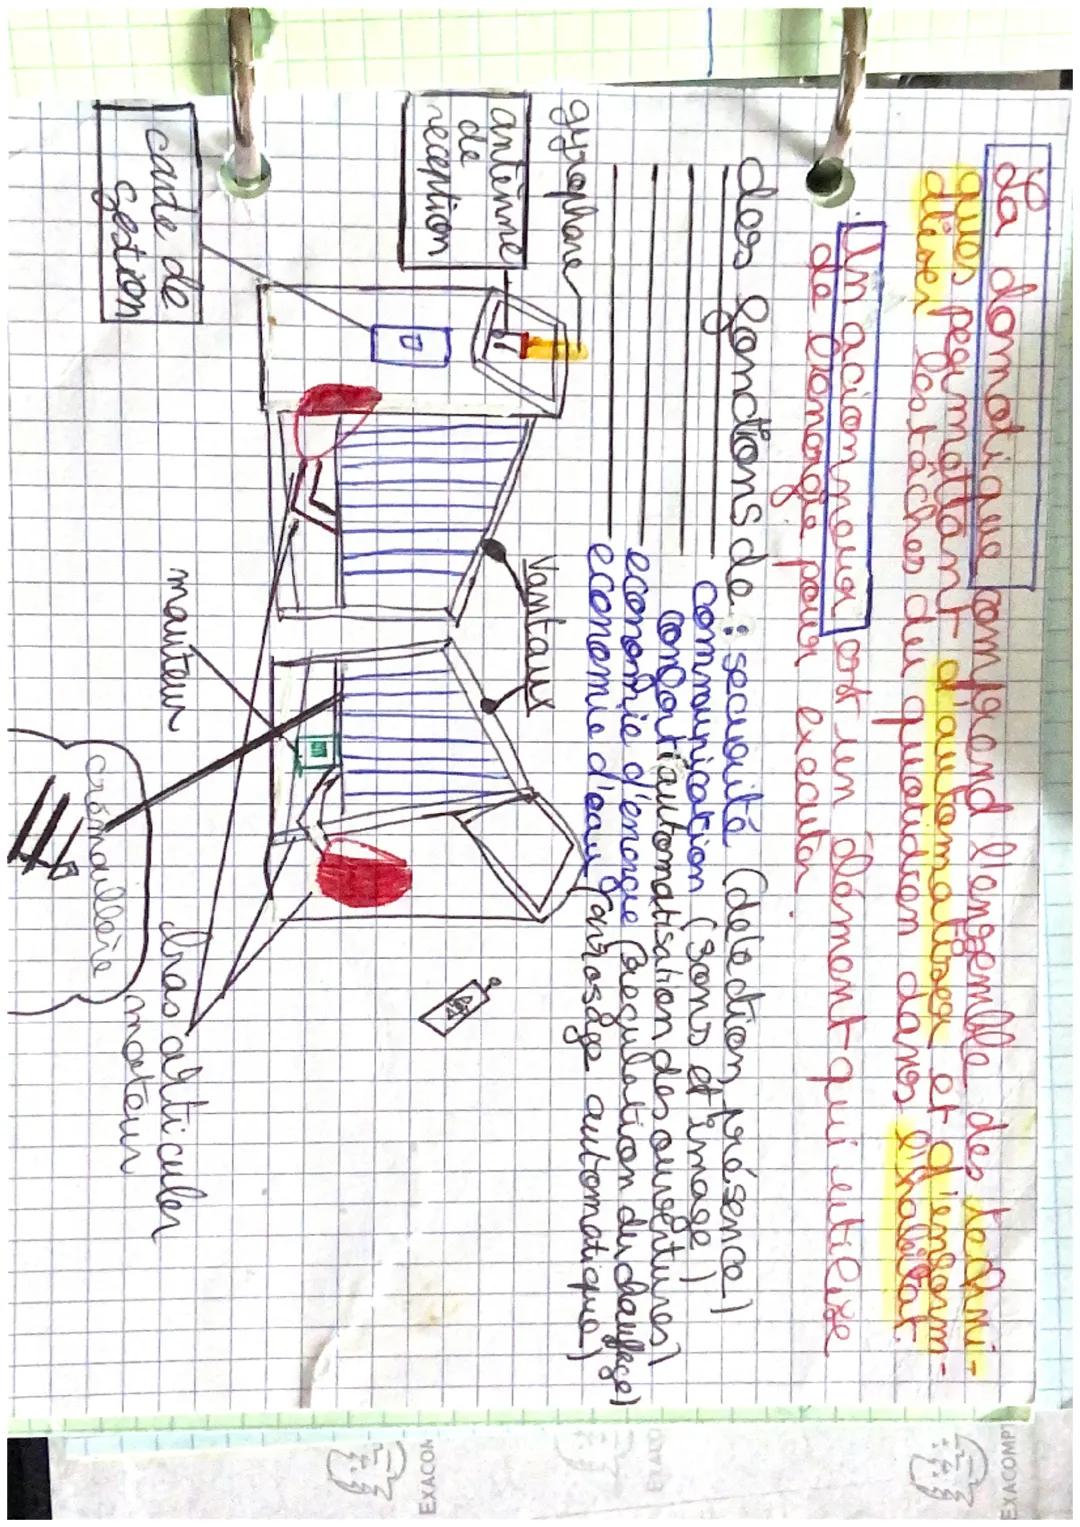 La domotique comprend l'ensemble des techni-
ques permettant d'automatiser et d'inform-
diser les tâches du quotidien dans l'habitat.
Un acionneur est un élément qui utilise
de l'énergie pour executer.
des fonctions de : securité (detection, présence)
communication (sons et image)
confort (automatisation des ouvertures)
economie d'energie (regulation du chauffage)
economie d'eau (arrosage automatique)
gyrophare
antenne
de
reception
Vantaux
carte de
gestion
moteur
bras articuler
moteur
crémaillère
EXACOMPT
EXACO
EXACOM